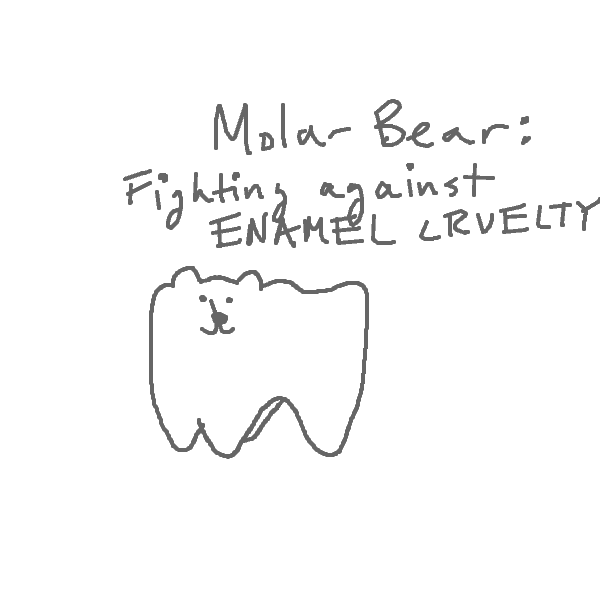 Molar Bear:
Fighting against
ENAMEL CRUELTY